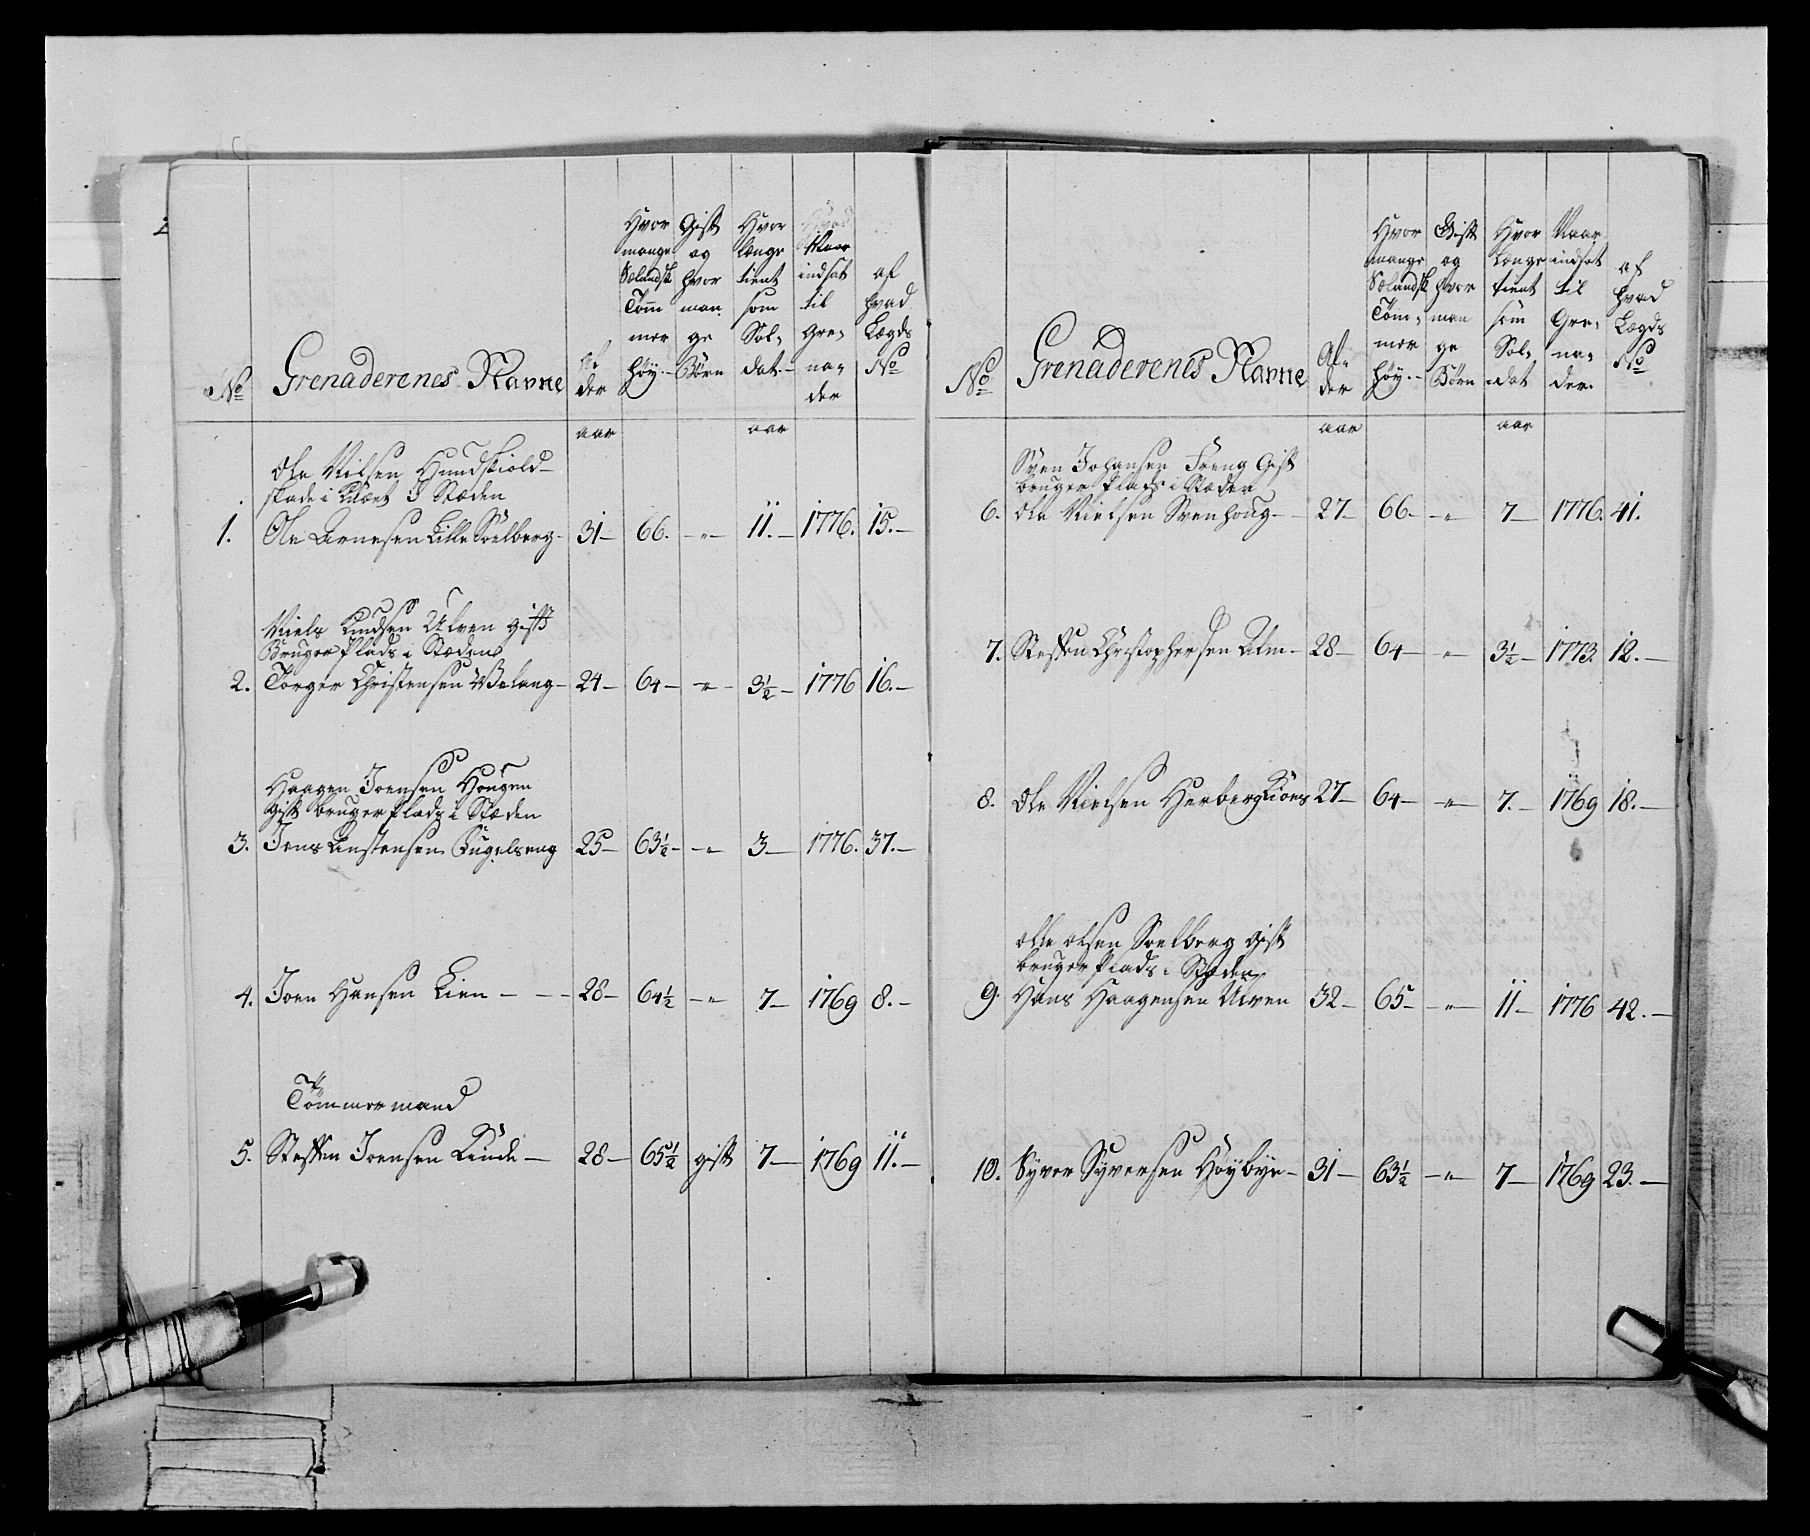 No
Grenaderenes Navne
Al
der
Hvor
mange
Sælandsk
Tom
mer
høy.
Gift
og
hvor
man
ge
Børn
Hvor
længe
tient
som
Sol-
dat.
Naar
indsat
til
Gre-
na-
der
af
hvad
Lægds
No
aar
aar
Ole Nilsen Hundskiold
i Stæden
1. Ole Arnesen Lille Sòelberg 31 66. " 11. 1776. 15.
Niels Knudsen Ulven gift
Bruger Plads i Stæden
2. Torger Christensen Melang 24 64 " 3½ 1776 16.
Haagen Joensen Hougen
gift bruger Plads i Stæden
3. Jens Engelseng 25 63½ " 3 1776. 37.
4. Joen Hansen Lien 28 64½ " 7 1769 8.
Tömmermand
5. Steffen Joensen Linde 28 65½ gift 7 1769 11.
No
Grenaderenes Navne
Al-
der
Hvor
mange
Sælandsk
Tòm-
mer
høy.
Gift
og
hvor
man
ge
Børn
Hvor
Længe
tient
som
Sol-
dat
Naar
indsat
til
Gre-
na-
der.
af
hvad
Lægds
No
aar
aar
Sven Johansen Gift
bruger Plads i Stæden
6. Ole Nielsen Svenhoug 27 66 " 7 1776. 41.
7. Steffen Christophersen Alm 28 64 " 3½ 1773. 12.
8. Ole Nielsen Herberg 27 64 " 7. 1769 18.
Olle Olsen Soelberg gift
bruger Plads i Stæden
9. Hans Haagensen Ulven 32 65 " 11 1776 42.
10. Syver Syversen Höybye 31 63½ " 7 1769 23.